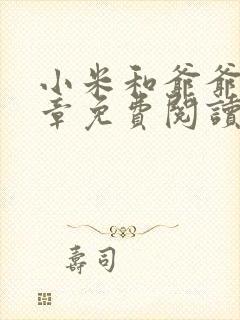 小米和爺爺
章免費閱讀
壽司